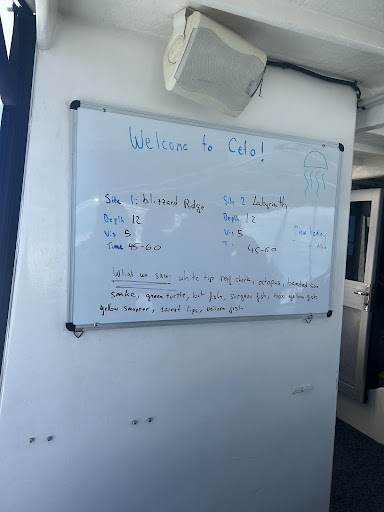 Welcome to Ceto!
Site 1: Blizzard Ridge
Depth 12
Vis 5
Time 45-60
Site 2 Labyrinth
Depth 12
Vis 5
Ti 45-60
What we saw: white tip reef shark, octopus, banded sea
snake, green turtle, bat fish, surgeon fish, box yellow fish
yellow snapper, sweet lips, unicorn fish